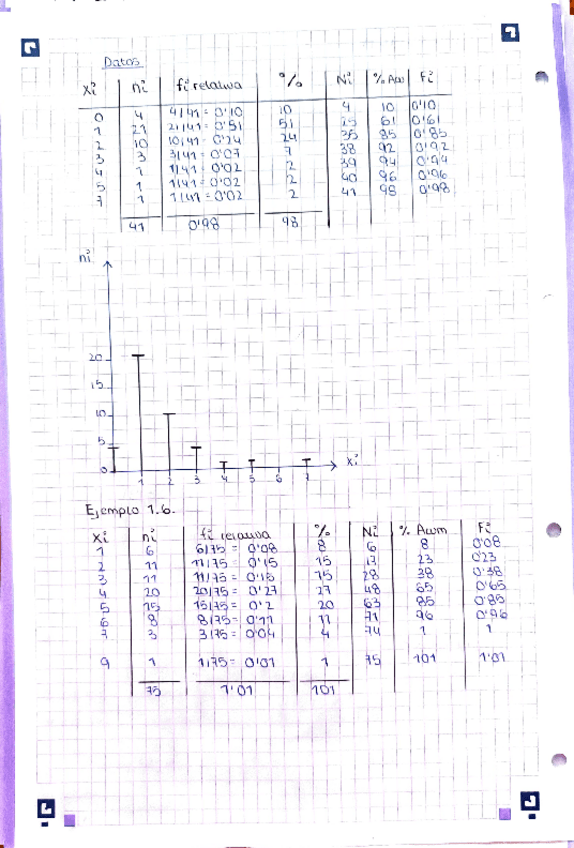 Datos
xi ni fi relativa % Ni % Acu Fi
0 4 4/41 = 0'10 10 4 10 0'10
1 21 21/41 = 0'51 51 25 61 0'61
2 10 10/41 = 0'24 24 35 85 0'85
3 3 3/41 = 0'07 7 38 92 0'92
4 1 1/41 = 0'02 2 39 94 0'94
5 1 1/41 = 0'02 2 40 96 0'96
7 1 1/41 = 0'02 2 41 98 0'98
41 0'98 98
ni
20
15
10
5
0
1 2 3 4 5 6 7 xi
Ejemplo 1.6.
xi ni fi relativa % Ni % Acum Fi
1 6 6/75 = 0'08 8 6 8 0'08
2 11 11/75 = 0'15 15 17 23 0'23
3 11 11/75 = 0'15 15 28 38 0'38
4 20 20/75 = 0'27 27 48 65 0'65
5 15 15/75 = 0'2 20 63 85 0'85
6 8 8/75 = 0'11 11 71 96 0'96
7 3 3/75 = 0'04 4 74 1 1
9 1 1/75 = 0'01 1 75 101 1'01
75 1'01 101